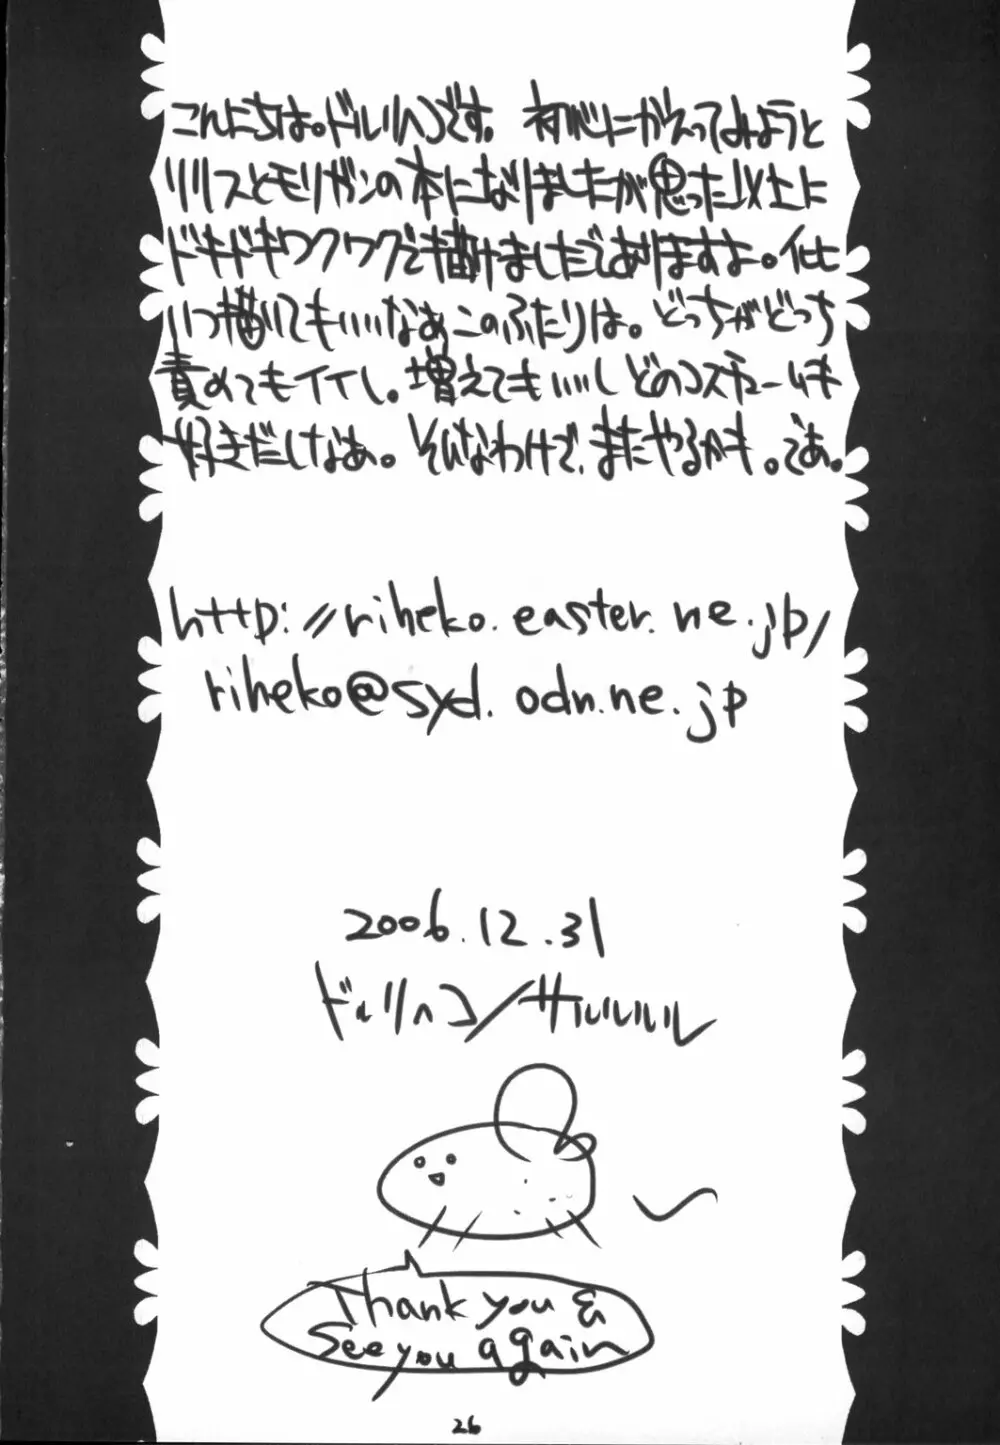 こんにちは。ドルリヘコです。初心にかえってみようと
リリスとモリガンの本になりましたが思った以上に
ドキドキワクワクで描けましたでありますよ。
いつ描いてもいいなぁこのふたりは。どっちがどっち
責めてもイイし。増えてもいいしどのコスチュームも
好きだしなあ。そんなわけで、またやるかも。でわ。
http://riheko.easter.ne.jp/
riheko@syd.odn.ne.jp
2006.12.31
ドルリヘコ/サルルルル
Thank you &
See you again
26